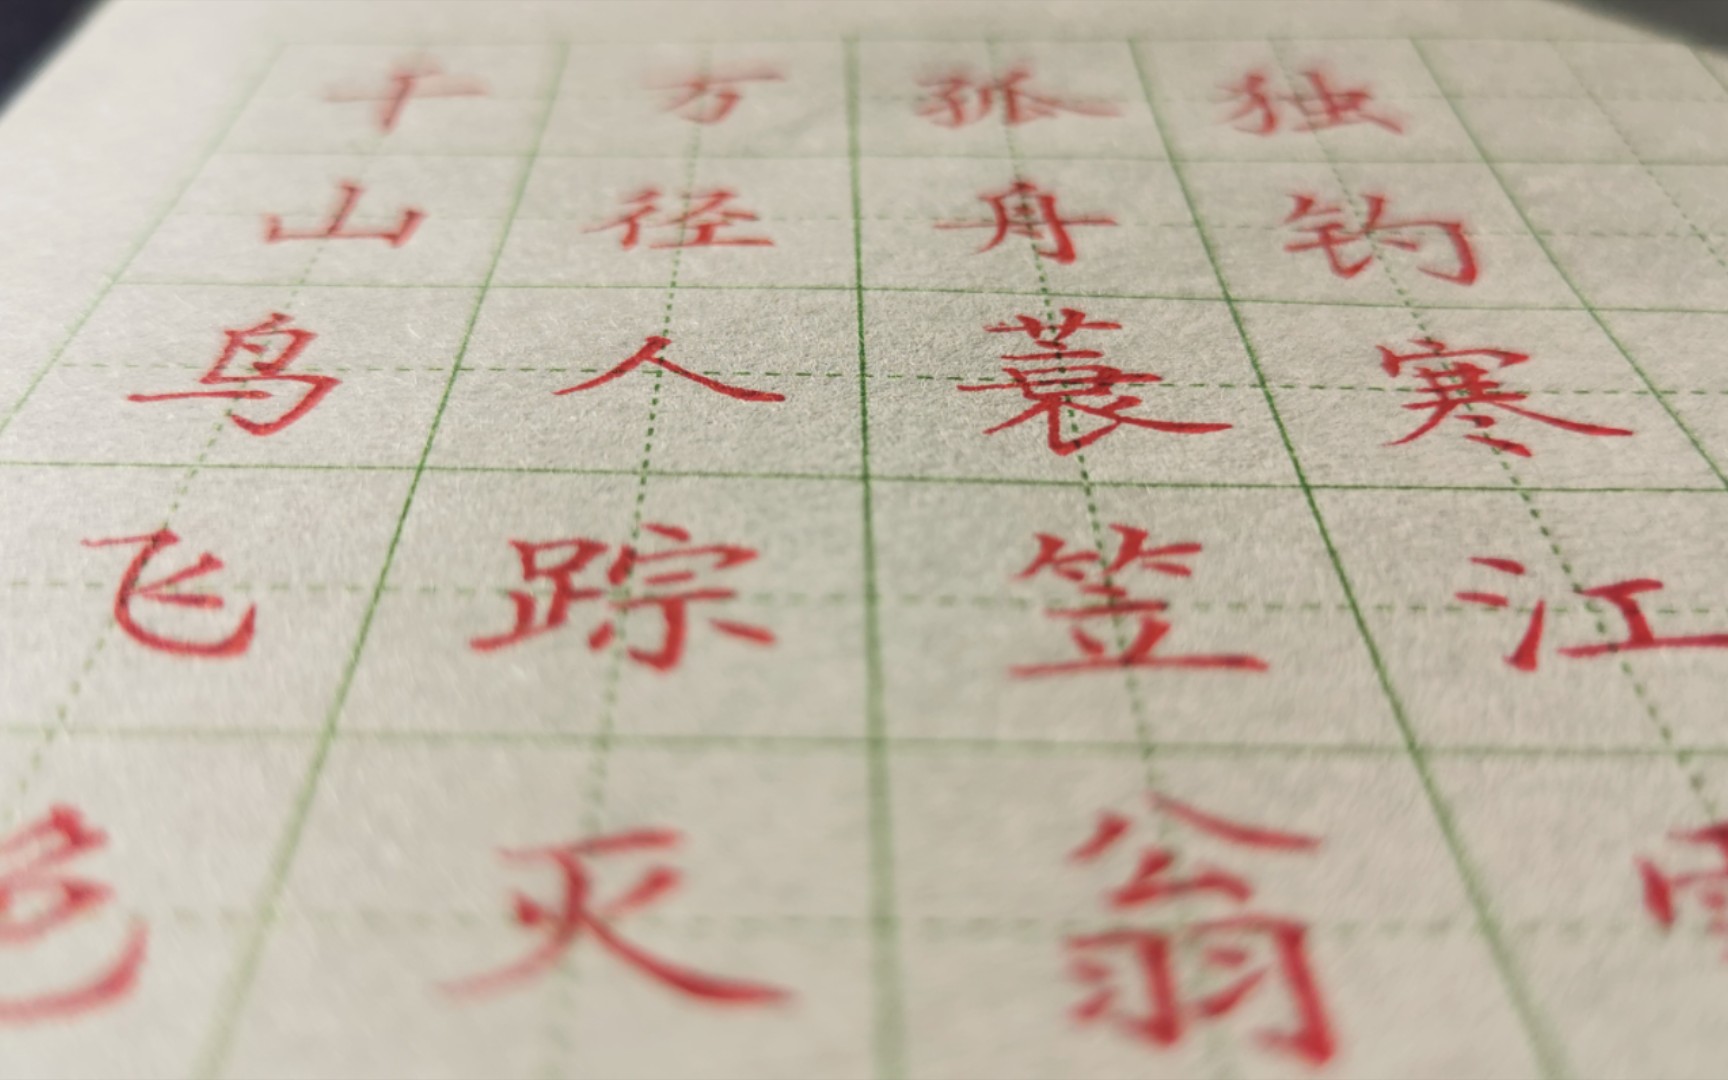 千山鸟飞
万径人踪灭
孤舟蓑笠翁
独钓寒江